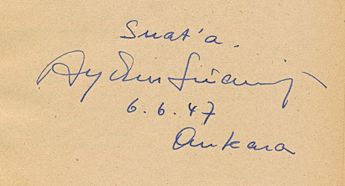 Suat'a.
6.6.47
Ankara